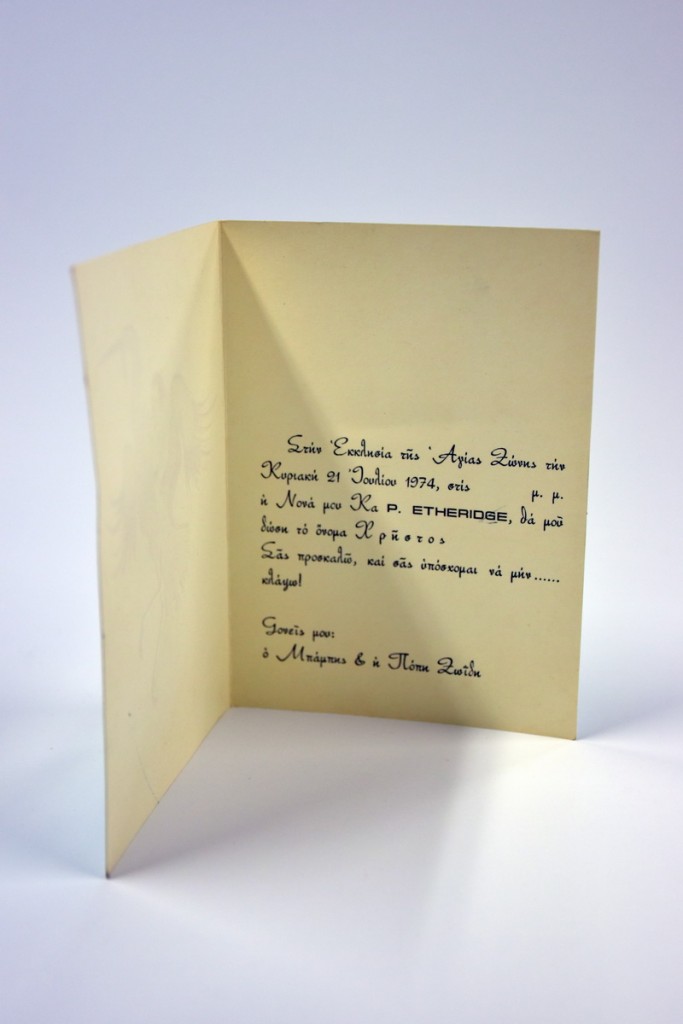 Στήν Ἐκκλησία τῆς Ἁγίας Ζώνης τήν
Κυριακή 21 Ἰουλίου 1974, στίς μ. μ.
ἡ Νονά μου Κα P. ETHERIDGE, θά μοῦ
δώση τό ὄνομα Χρῆστος
Σᾶς προσκαλῶ, καί σᾶς ὑπόσχομαι νά μήν......
κλάψω!
Γονεῖς μου:
ὁ Μπάμπης & ἡ Πόπη Ζωΐδη